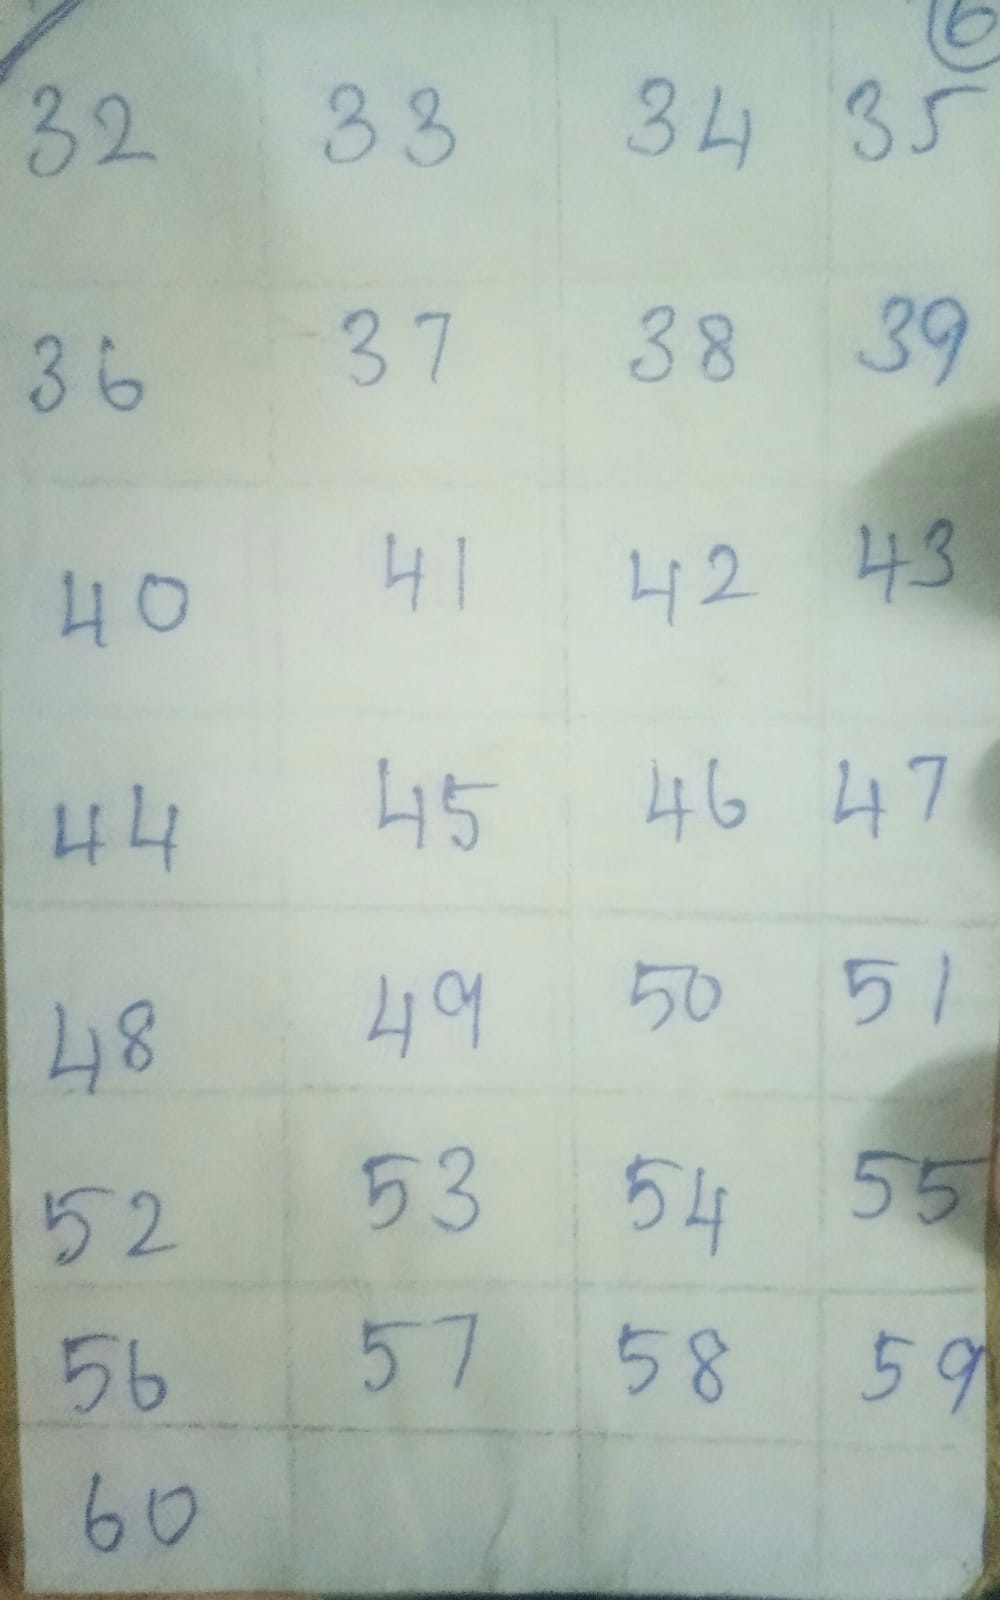 6
32 33 34 35
36 37 38 39
40 41 42 43
44 45 46 47
48 49 50 51
52 53 54 55
56 57 58 59
60